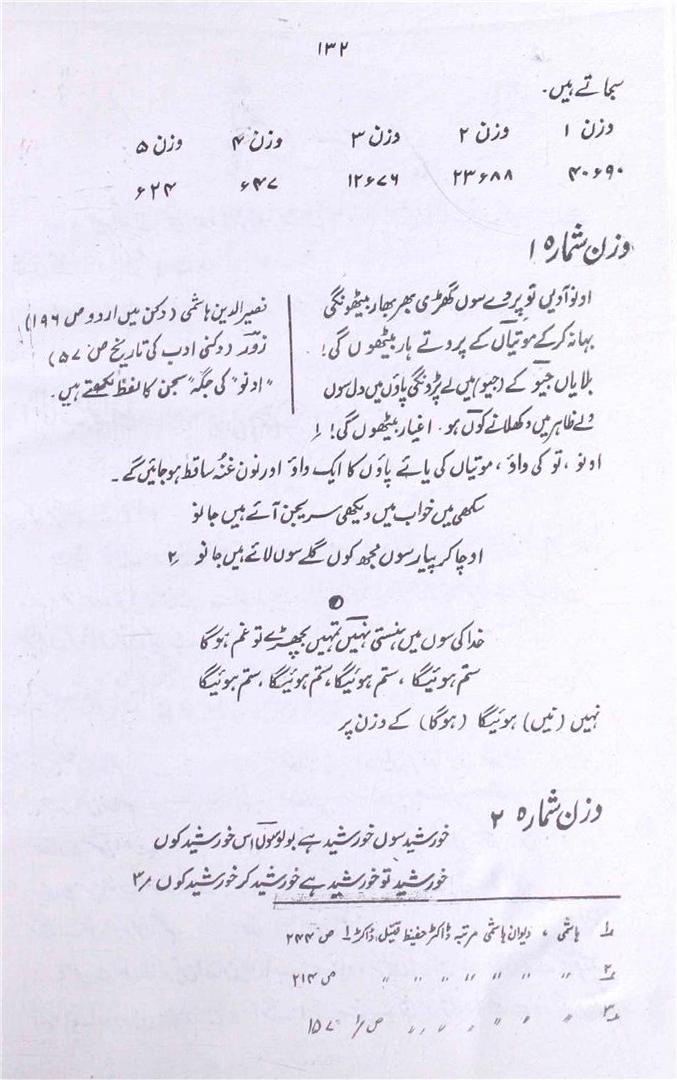 ۱۳۲
سجاتے ہیں۔
وزن ۱ وزن ۲ وزن ۳ وزن ۴ وزن ۵
۴۰۶۹۰ ۲۳۶۸۸ ۱۲۶۷۶ ۶۴۷ ۶۲۴
وزن شمارہ ۱
اونو آویں تو پردے سوں گھڑی بھر بھار بیٹھونگی
بہانہ کر کے موتیاں کے پروتے ہار بیٹھوں گی!
بلایاں جیو کے (جیو) ہیں لے پڑونگی پاؤں میں دل سوں
ولے ظاہر میں دکھلانے کوں ہو۔ اغیار بیٹھوں گی! ۱؎
نصیر الدین ہاشمی (دکن میں اردو ص ۱۹۶)
زور (دکنی ادب کی تاریخ ص ۵۷)
"اونو" کی جگہ "سجن کا لفظ لکھتے ہیں۔
اونو، تو کی واؤ، موتیاں کی یائے پاؤں کا ایک واؤ اور نون غنہ ساقط ہو جائیں گے۔
سکھی میں خواب میں دیکھی سریجن آئے ہیں جانو
اوچا کر پیار سوں مجھ کوں گلے سوں لائے ہیں جانو ۲؎
خدا کی سوں میں ہنستی نہیں تمہیں بچھڑے تو غم ہوگا
ستم ہوئیگا، ستم ہوئیگا، ستم ہوئیگا، ستم ہوئیگا
نہیں (نیں) ہوئیگا (ہوگا) کے وزن پر
وزن شمارہ ۲
خورشید سوں خورشید ہے بولو موں اس خورشید کوں
خورشید تو خورشید ہے خورشید کر خورشید کوں ۳؎
۱؎ ہاشمی، دیوان ہاشمی مرتبہ ڈاکٹر حفیظ قتیل، ڈاکٹر ص ۲۴۴
۲؎ " " " " " " " ص ۲۱۴
۳؎ " " " " " " ص ۱۵۷